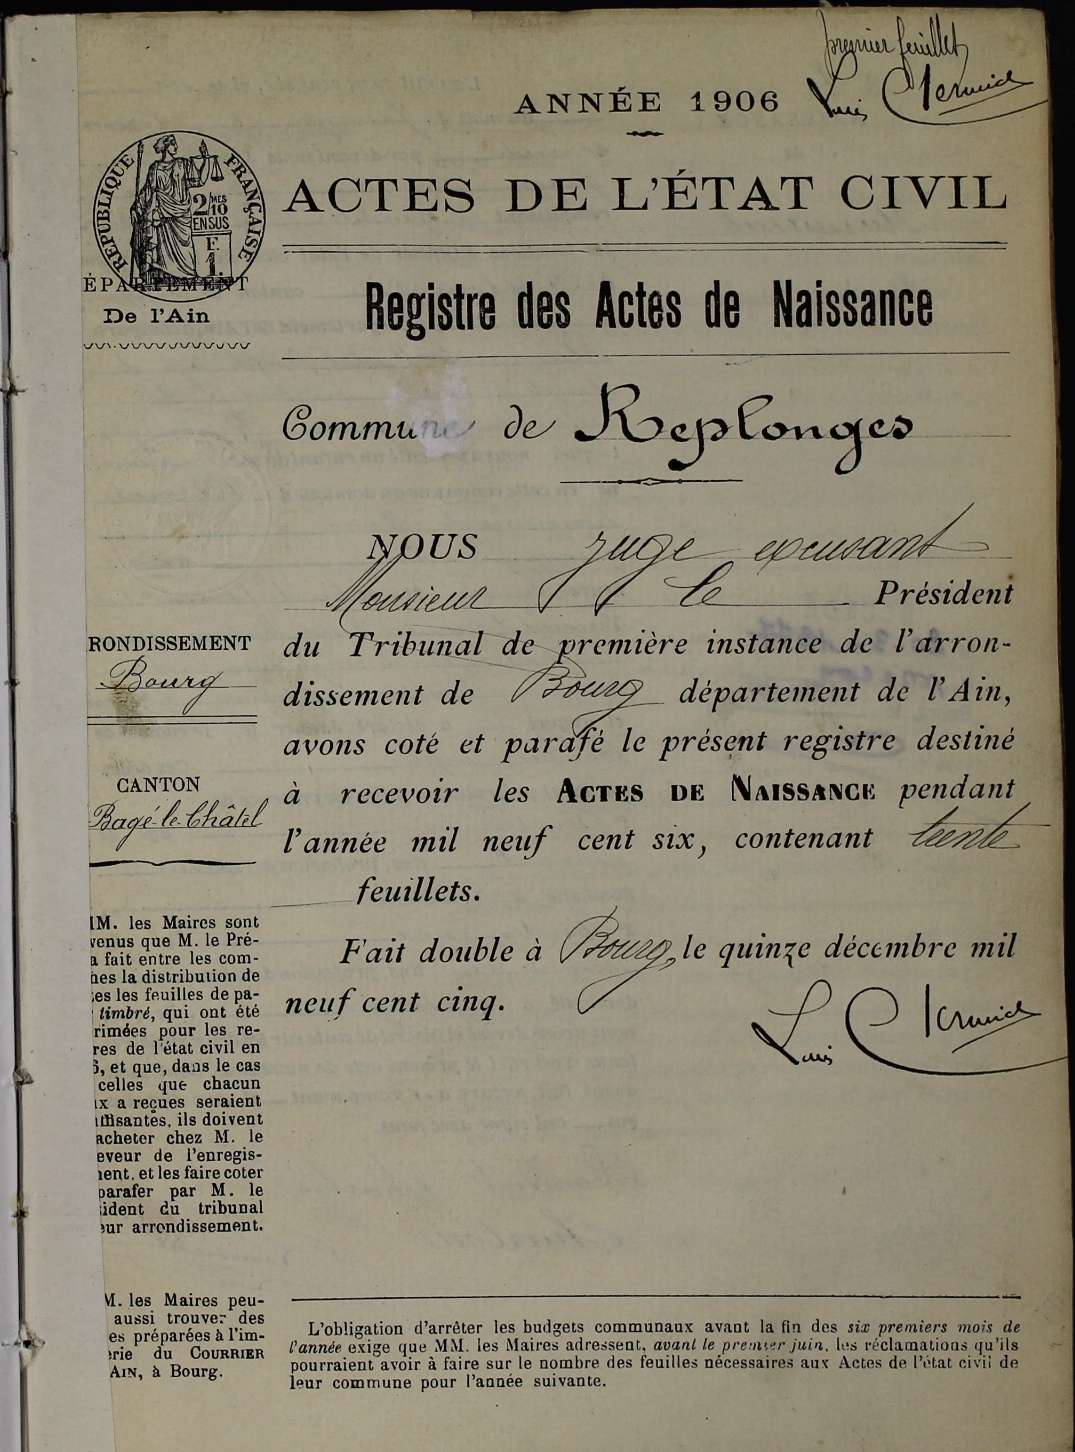 premier feuillet
ANNÉE 1906
ACTES DE L'ÉTAT CIVIL
RÉPUBLIQUE FRANÇAISE
2 MES
10
EN SUS
F.
1.
ÉPARTEMENT
De l'Ain
Registre des Actes de Naissance
Commune de Replonges
NOUS juge excusant
Monsieur le Président
du Tribunal de première instance de l'arron-
dissement de Bourg département de l'Ain,
avons coté et parafé le présent registre destiné
à recevoir les ACTES DE NAISSANCE pendant
l'année mil neuf cent six, contenant trente
feuillets.
Fait double à Bourg, le quinze décembre mil
neuf cent cinq.
RONDISSEMENT
Bourg
CANTON
Bagé-le-Châtel
MM. les Maires sont
venus que M. le Pré-
a fait entre les com-
nes la distribution de
es les feuilles de pa-
timbré, qui ont été
rimées pour les re-
res de l'état civil en
6, et que, dans le cas
celles que chacun
ux a reçues seraient
uffisantes, ils doivent
acheter chez M. le
eveur de l'enregis-
ment, et les faire coter
parafer par M. le
sident du tribunal
eur arrondissement.
M. les Maires peu-
aussi trouver des
es préparées à l'im-
rie du COURRIER
AIN, à Bourg.
L'obligation d'arrêter les budgets communaux avant la fin des six premiers mois de
l'année exige que MM. les Maires adressent, avant le premier juin, les réclamations qu'ils
pourraient avoir à faire sur le nombre des feuilles nécessaires aux Actes de l'état civil de
leur commune pour l'année suivante.